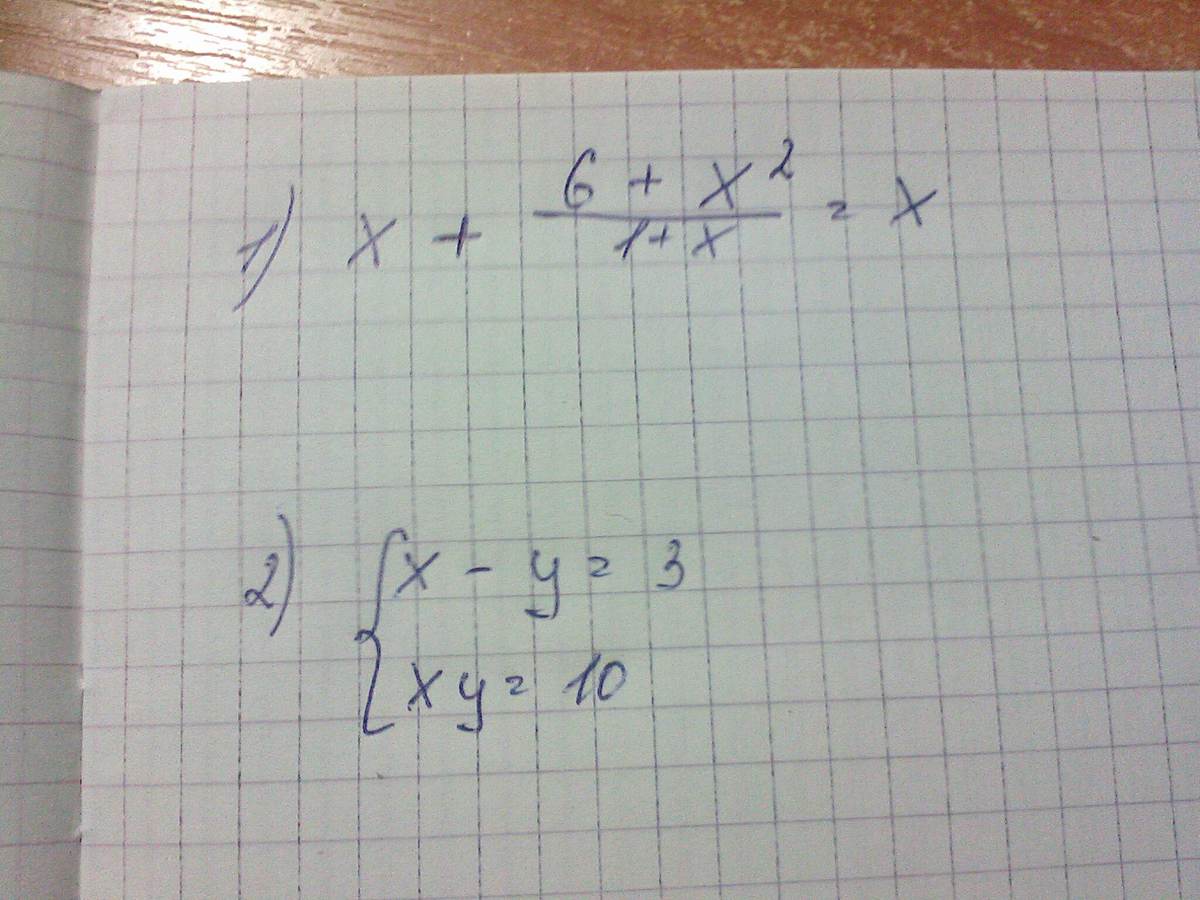 1) x + \frac{6 + x^2}{1 + x} = x
2) { x - y = 3
xy = 10